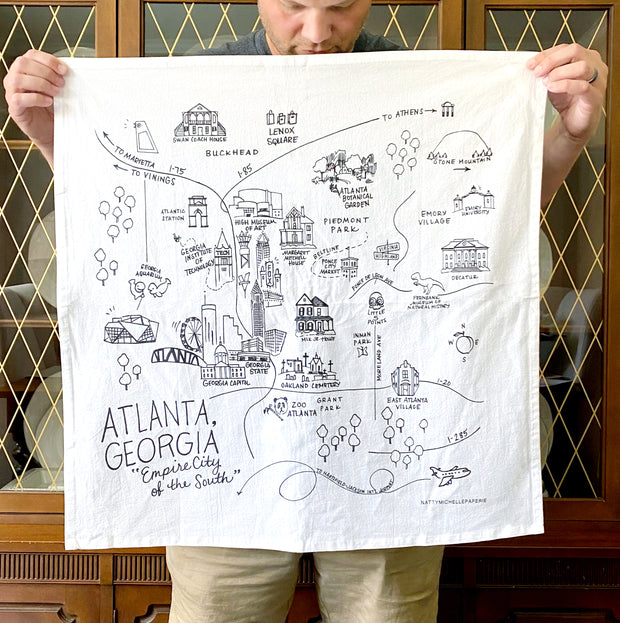 TO ATHENS
SWAN COACH HOUSE
LENOX
SQUARE
BUCKHEAD
TO MARIETTA
I-75
TO VININGS
I-85
STONE MOUNTAIN
ATLANTA
BOTANICAL
GARDEN
ATLANTIC
STATION
HIGH MUSEUM
OF ART
PIEDMONT
PARK
EMORY
VILLAGE
EMORY
UNIVERSITY
GEORGIA
INSTITUTE
OF
TECHNOLOGY
TECH
MARGARET
MITCHELL
HOUSE
BELTLINE
PONCE
CITY
MARKET
VIRGINIA
HIGHLAND
DECATUR
GEORGIA
AQUARIUM
PONCE DE LEON AVE
FERNBANK
MUSEUM OF
NATURAL HISTORY
LITTLE
5
POINTS
MLK JR. HOUSE
INMAN
PARK
MORELAND AVE
N
W E
S
GEORGIA
STATE
GEORGIA CAPITOL
OAKLAND CEMETERY
I-20
ZOO
ATLANTA
GRANT
PARK
EAST ATLANTA
VILLAGE
ATLANTA,
GEORGIA
"Empire City
of the South"
I-285
TO HARTSFIELD-JACKSON INT'L AIRPORT
NATTYMICHELLEPAPERIE